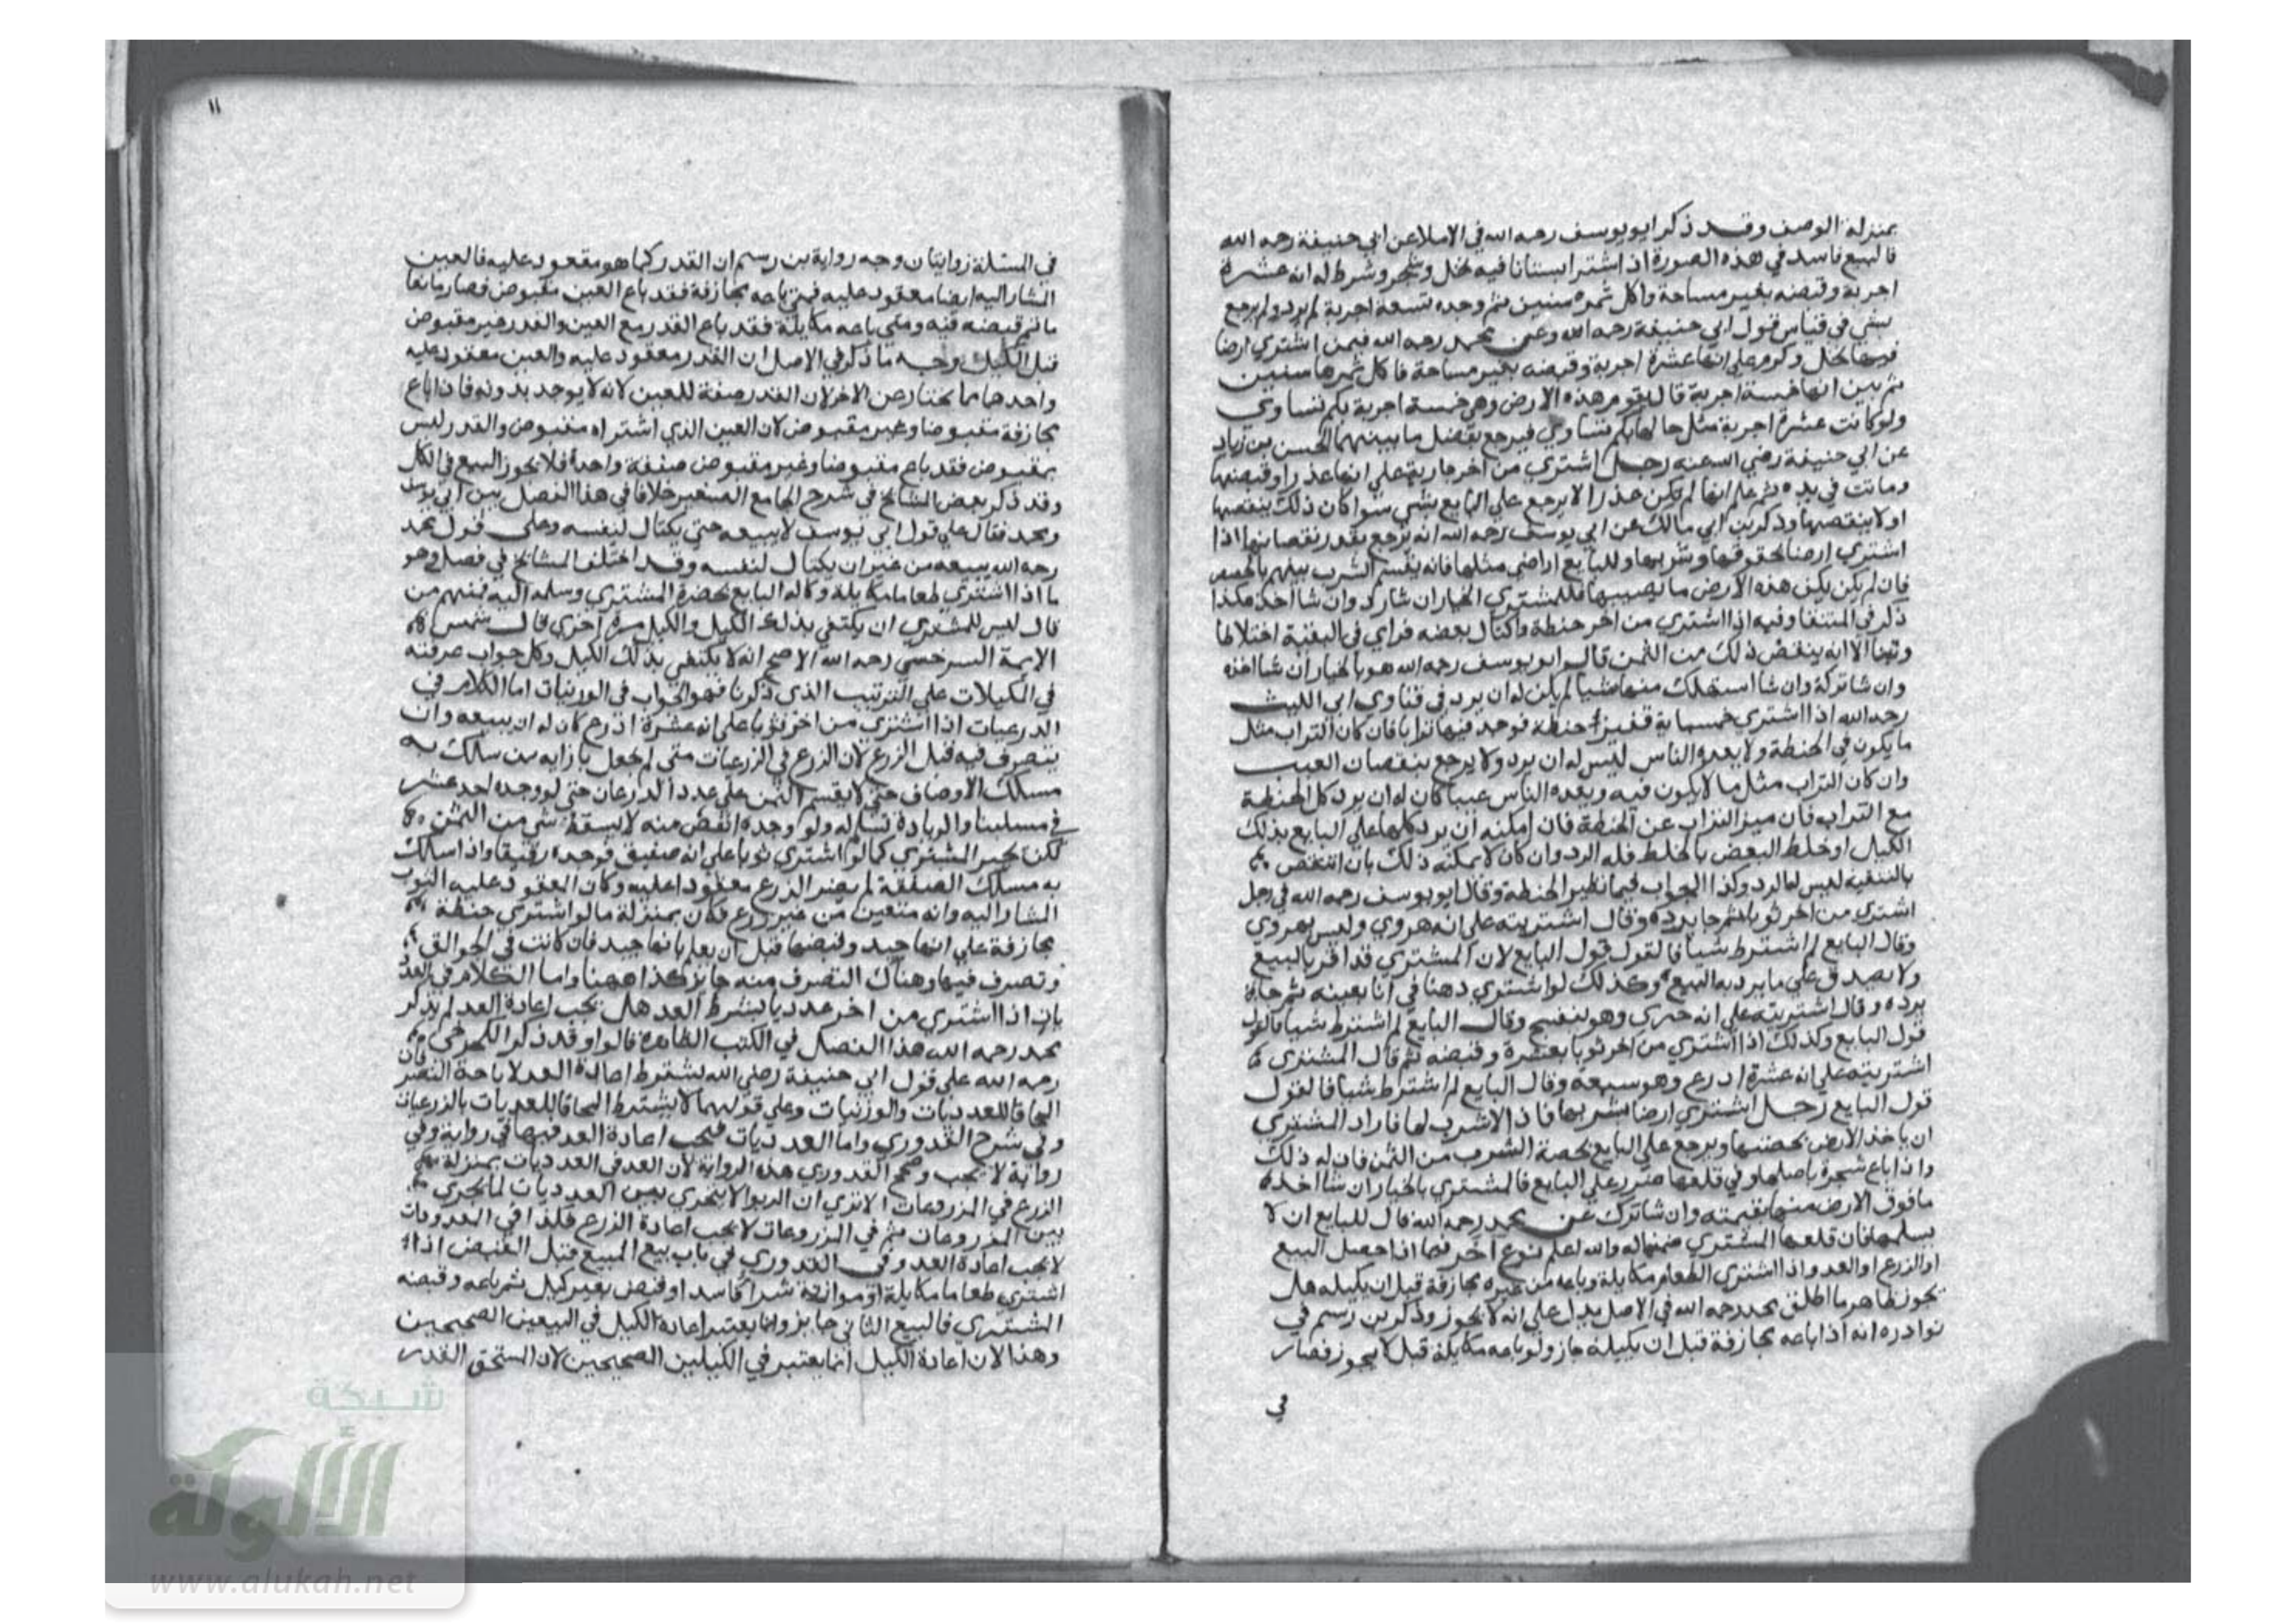 بمنزلة الوصف وقد ذكر ابو يوسف رحمه الله في الاملا عن ابي حنيفة رحمه الله
فالبيع فاسد في هذه الصورة اذا اشترا بستانا فيه نخل وشجر وشرط له انه عشرة
اجربة وقبضه بغير مساحة واكل ثمره سنين ثم وجده تسعة اجربة لم يرد ولم يرجع
بشي في قياس قول ابي حنيفة رحمه الله وعن محمد رحمه الله فيمن اشتري ارضا
فيها نخل وكرم على انها عشرة اجربة وقبضه بغير مساحة فاكل ثمرها سنين
ثم تبين انها خمسة اجربة قال يقوم هذه الارض وهي خمسة اجربة بكم تساوي
ولو كانت عشرة اجربة مثل حالها بكم تساوي فيرجع بفضل ما بينهما الحسن بن زياد
عن ابي حنيفة رضي الله عنه رجل اشتري من اخر جارية على انها عذرا وقبضها
وماتت في يده ثم علم انها لم تكن عذرا لا يرجع على البايع بشي سوا كان ذلك ينقصها
او لا ينقصها وذكر بن ابي مالك عن ابي يوسف رحمه الله انه يرجع بقدر نقصانها اذا
اشتري ارضا بحقوقها وشربها وللبايع اراضي مثلها فانه يقسم الشرب بينهم بالحصص
فان لم يكن يكف هذه الارض ما يصيبها فللمشتري الخيار ان شا رد وان شا اخذ هكذا
ذكر في المنتقا وفيه اذا اشتري من اخر حنطة واكتال بعضه فراي في البقية اختلاطا
وتبنا الا انه ينقض ذلك من الثمن قال ابو يوسف رحمه الله هو بالخيار ان شا اخذه
وان شا تركه وان شا استهلك منها شيا لم يكن له ان يرد في فتاوي ابي الليث
رحمه الله اذا اشتري خمسماية قفيز حنطة فوجد فيها ترابا فان كان التراب مثل
ما يكون في الحنطة ولا يعده الناس ليس له ان يرد ولا يرجع بنقصان العيب
وان كان التراب مثل ما لا يكون فيه ويعده الناس عيبا كان له ان يرد كل الحنطة
مع التراب فان ميز التراب عن الحنطة فان امكنه ان يرد كلها على البايع بذلك
الكيل او خلط البعض بالخلط فله الرد وان كان لا يمكنه ذلك بان انتقص
بالتنقية ليس له الرد وكذا الجواب فيما نظير الحنطة وقال ابو يوسف رحمه الله في رجل
اشتري من اخر ثوبا ثم جا برده وقال اشتريته على انه هروي وليس بهروي
وقال البايع لم اشترط شيا فالقول قول البايع لان المشتري قد اقر بالبيع
ولا يصدق على ما يرد به البيع وكذلك لو اشتري دهنا في انا بعينه ثم جا
برده وقال اشتريته على انه خيري وهو بنفسج وقال البايع لم اشترط شيا فالقول
قول البايع وكذلك اذا اشتري من اخر ثوبا بعشرة وقبضه ثم قال المشتري
اشتريته على انه عشرة اذرع وهو سبعة وقال البايع لم اشترط شيا فالقول
قول البايع رجل اشتري ارضا بشربها فاذا لا شرب لها فاراد المشتري
ان ياخذ الارض بحصتها ويرجع على البايع بحصة الشرب من الثمن فان له ذلك
واذا باع شجرة باصلها وفي قلعها ضرر على البايع فالمشتري بالخيار ان شا اخذ
ما فوق الارض منها بقيمته وان شا ترك عن محمد رحمه الله قال للبايع ان لا
يسلمها فان قلعها المشتري ضمنها له والله اعلم نوع اخر فيما اذا حصل البيع
او الزرع او العد واذا اشتري الطعام مكايلة وباعه من غيره مجازفة قبل ان يكيله هل
يجوز ظاهر ما اطلق محمد رحمه الله في الاصل يدل على انه لا يجوز وذكر بن رستم في
نوادره انه اذا باعه مجازفة قبل ان يكيله جاز ولو باعه مكايلة قبل لا يجوز فصار
في
١١
في المسئلة روايتان وجه رواية بن رستم ان القدر كما هو مقعود عليه فالعين
المشار اليه ايضا معقود عليه فمتي باعه مجازفة فقد باع العين مقبوض فصار بايعا
ما تم قبضه فيه ومتى باعه مكايلة فقد باع القدر مع العين والقدر غير مقبوض
قبل الكيل وجه ما ذكر في الاصل ان القدر معقود عليه والعين معقود عليه
واحدهما ما يختار عن الاخر لان القدر صفة للعين لانه لا يوجد بدونه فاذا باع
مجازفة مقبوضا وغير مقبوض لان العين الذي اشتراه مقبوض والقدر ليس
بمقبوض فقد باع مقبوضا وغير مقبوض صفقة واحدة فلا يجوز البيع في الكل
وقد ذكر بعض المشايخ في شرح الجامع الصغير خلافا في هذا الفصل بين ابي يوسف
ومحمد فقال على قول ابي يوسف لا يبيعه حتي يكتال لنفسه وعلى قول محمد
رحمه الله يبيعه من غير ان يكتال لنفسه وقد اختلف المشايخ في فصل وهو
ما اذا اشتري طعاما مكايلة وكاله البايع بحضرة المشتري وسلمه اليه فمنهم من
قال ليس للمشتري ان يكتفي بذلك الكيل والكيل مرة اخري قال شمس
الايمة السرخسي رحمه الله الاصح انه لا يكتفي بذلك الكيل وكل جواب عرفته
في المكيلات على الترتيب الذي ذكرنا فهو الجواب في الوزنيات اما الكلام في
الدرعيات اذا اشتري من اخر ثوبا على انه عشرة اذرع كان له ان يبيعه وان
يتصرف فيه قبل الزرع لان الزرع في الزرعيات متى لم يجعل بازايه من سالك به
مسلك الاوصاف حتي لا يقسم الثمن على عدد الدرعان حتي لو وجده احد عشر
في مسلتنا والزيادة تسلم له ولو وجده انقص منه لا يسقط شي من الثمن
لكن يخير المشتري كما لو اشتري ثوبا على انه صفيق فوجده رقيقا واذا سلك
به مسلك الصفقة لم يصر الذرع معقودا عليه وكان المعقود عليه الثوب
المشار اليه وانه متعين من غير زرع فكان بمنزلة ما لو اشتري حنطة
مجازفة على انها جيد وقبضها قبل ان يعلم بانها جيد فان كانت في الجوالق
وتصرف فيها وهناك التصرف منه جايز كذا ههنا واما الكلام في العد
بان اذا اشتري من اخر عدديا بشرط العد هل يجب اعادة العد لم يذكر
محمد رحمه الله هذا الفصل في الكتب الظاهرة قالوا وقد ذكر الكرخي
رحمه الله على قول ابي حنيفة رضي الله يشترط اعادة العد لاباحة التصرف
الحاقا للعدديات والوزنيات وعلى قولهما لا يشترط الحاقا للعديات بالزرعيات
وفي شرح القدوري واما العدديات فيجب اعادة العد فيها في رواية وفي
رواية لا يجب وصحح القدوري هذه الرواية لان العد في العدديات بمنزلة
الزرع في المزروعات الا تري ان الربوا لا يجري بين العدديات لما يجري
بين المزروعات ثم في المزروعات لا يجب اعادة الزرع فلذا في العدديات
لا يجب اعادة العد وفي القدوري في باب بيع المبيع قبل القبض اذا
اشتري طعاما مكايلة او موازنة شرا فاسدا وقبض بغير كيل ثم باعه وقبضه
المشتري فالبيع الثاني جايز وانما يعتبر اعادة الكيل في البيعين الصحيحين
وهذا لان اعادة الكيل انما يعتبر في الكيلين الصحيحين لان المستحق القدر
شبكة
الألوكة
www.alukah.net